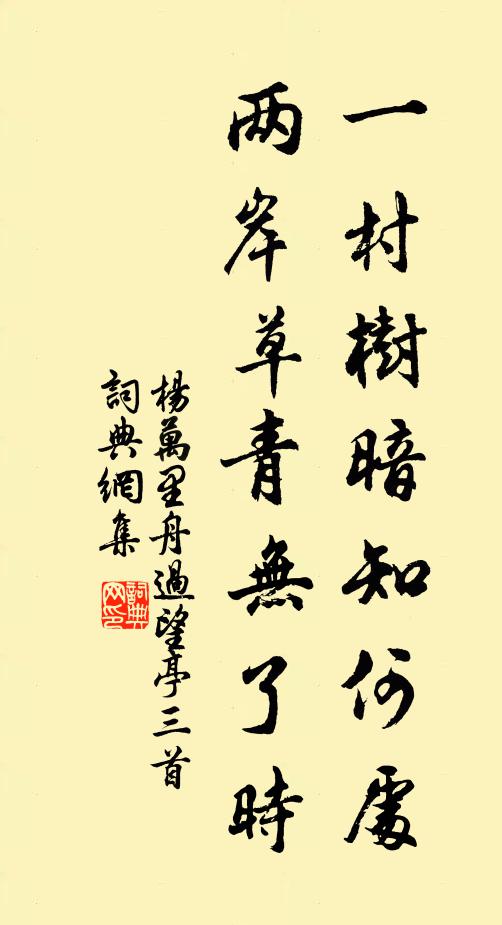 一村樹暗知何處
两岸草青無了時
楊萬里舟過望亭三首
詞典網集
詞典网印